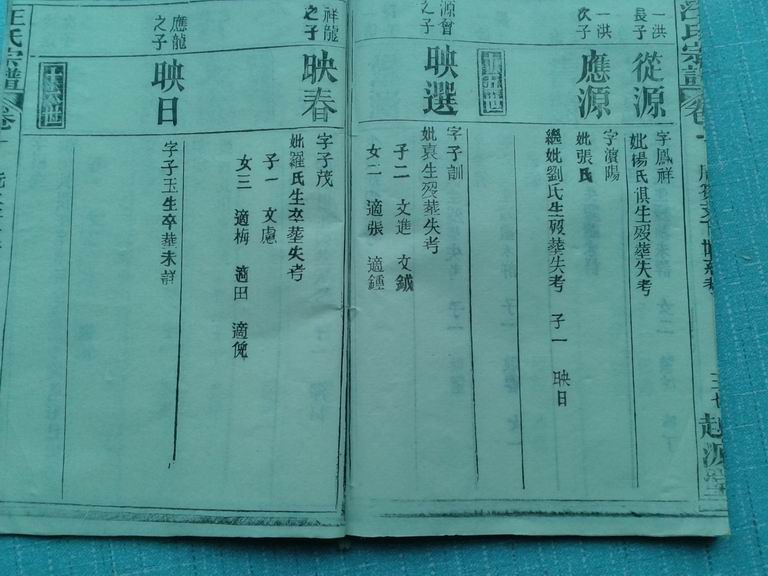 汪氏宗譜
卷一
越源堂
一洪
長子
從源
字鳳祥
妣楊氏俱生殁葬失考
一洪
次子
應源
字濱陽
妣張氏
繼妣劉氏生殁葬失考 子一 映日
源會
之子
映選
字子訓
妣袁生殁葬失考
子二 文進 文鉞
女二 適張 適鍾
祥龍
之子
映春
字子茂
妣羅氏生卒葬失考
子一 文慮
女三 適梅 適田 適倪
應龍
之子
映日
字子玉生卒葬未詳
汪氏宗譜
卷一